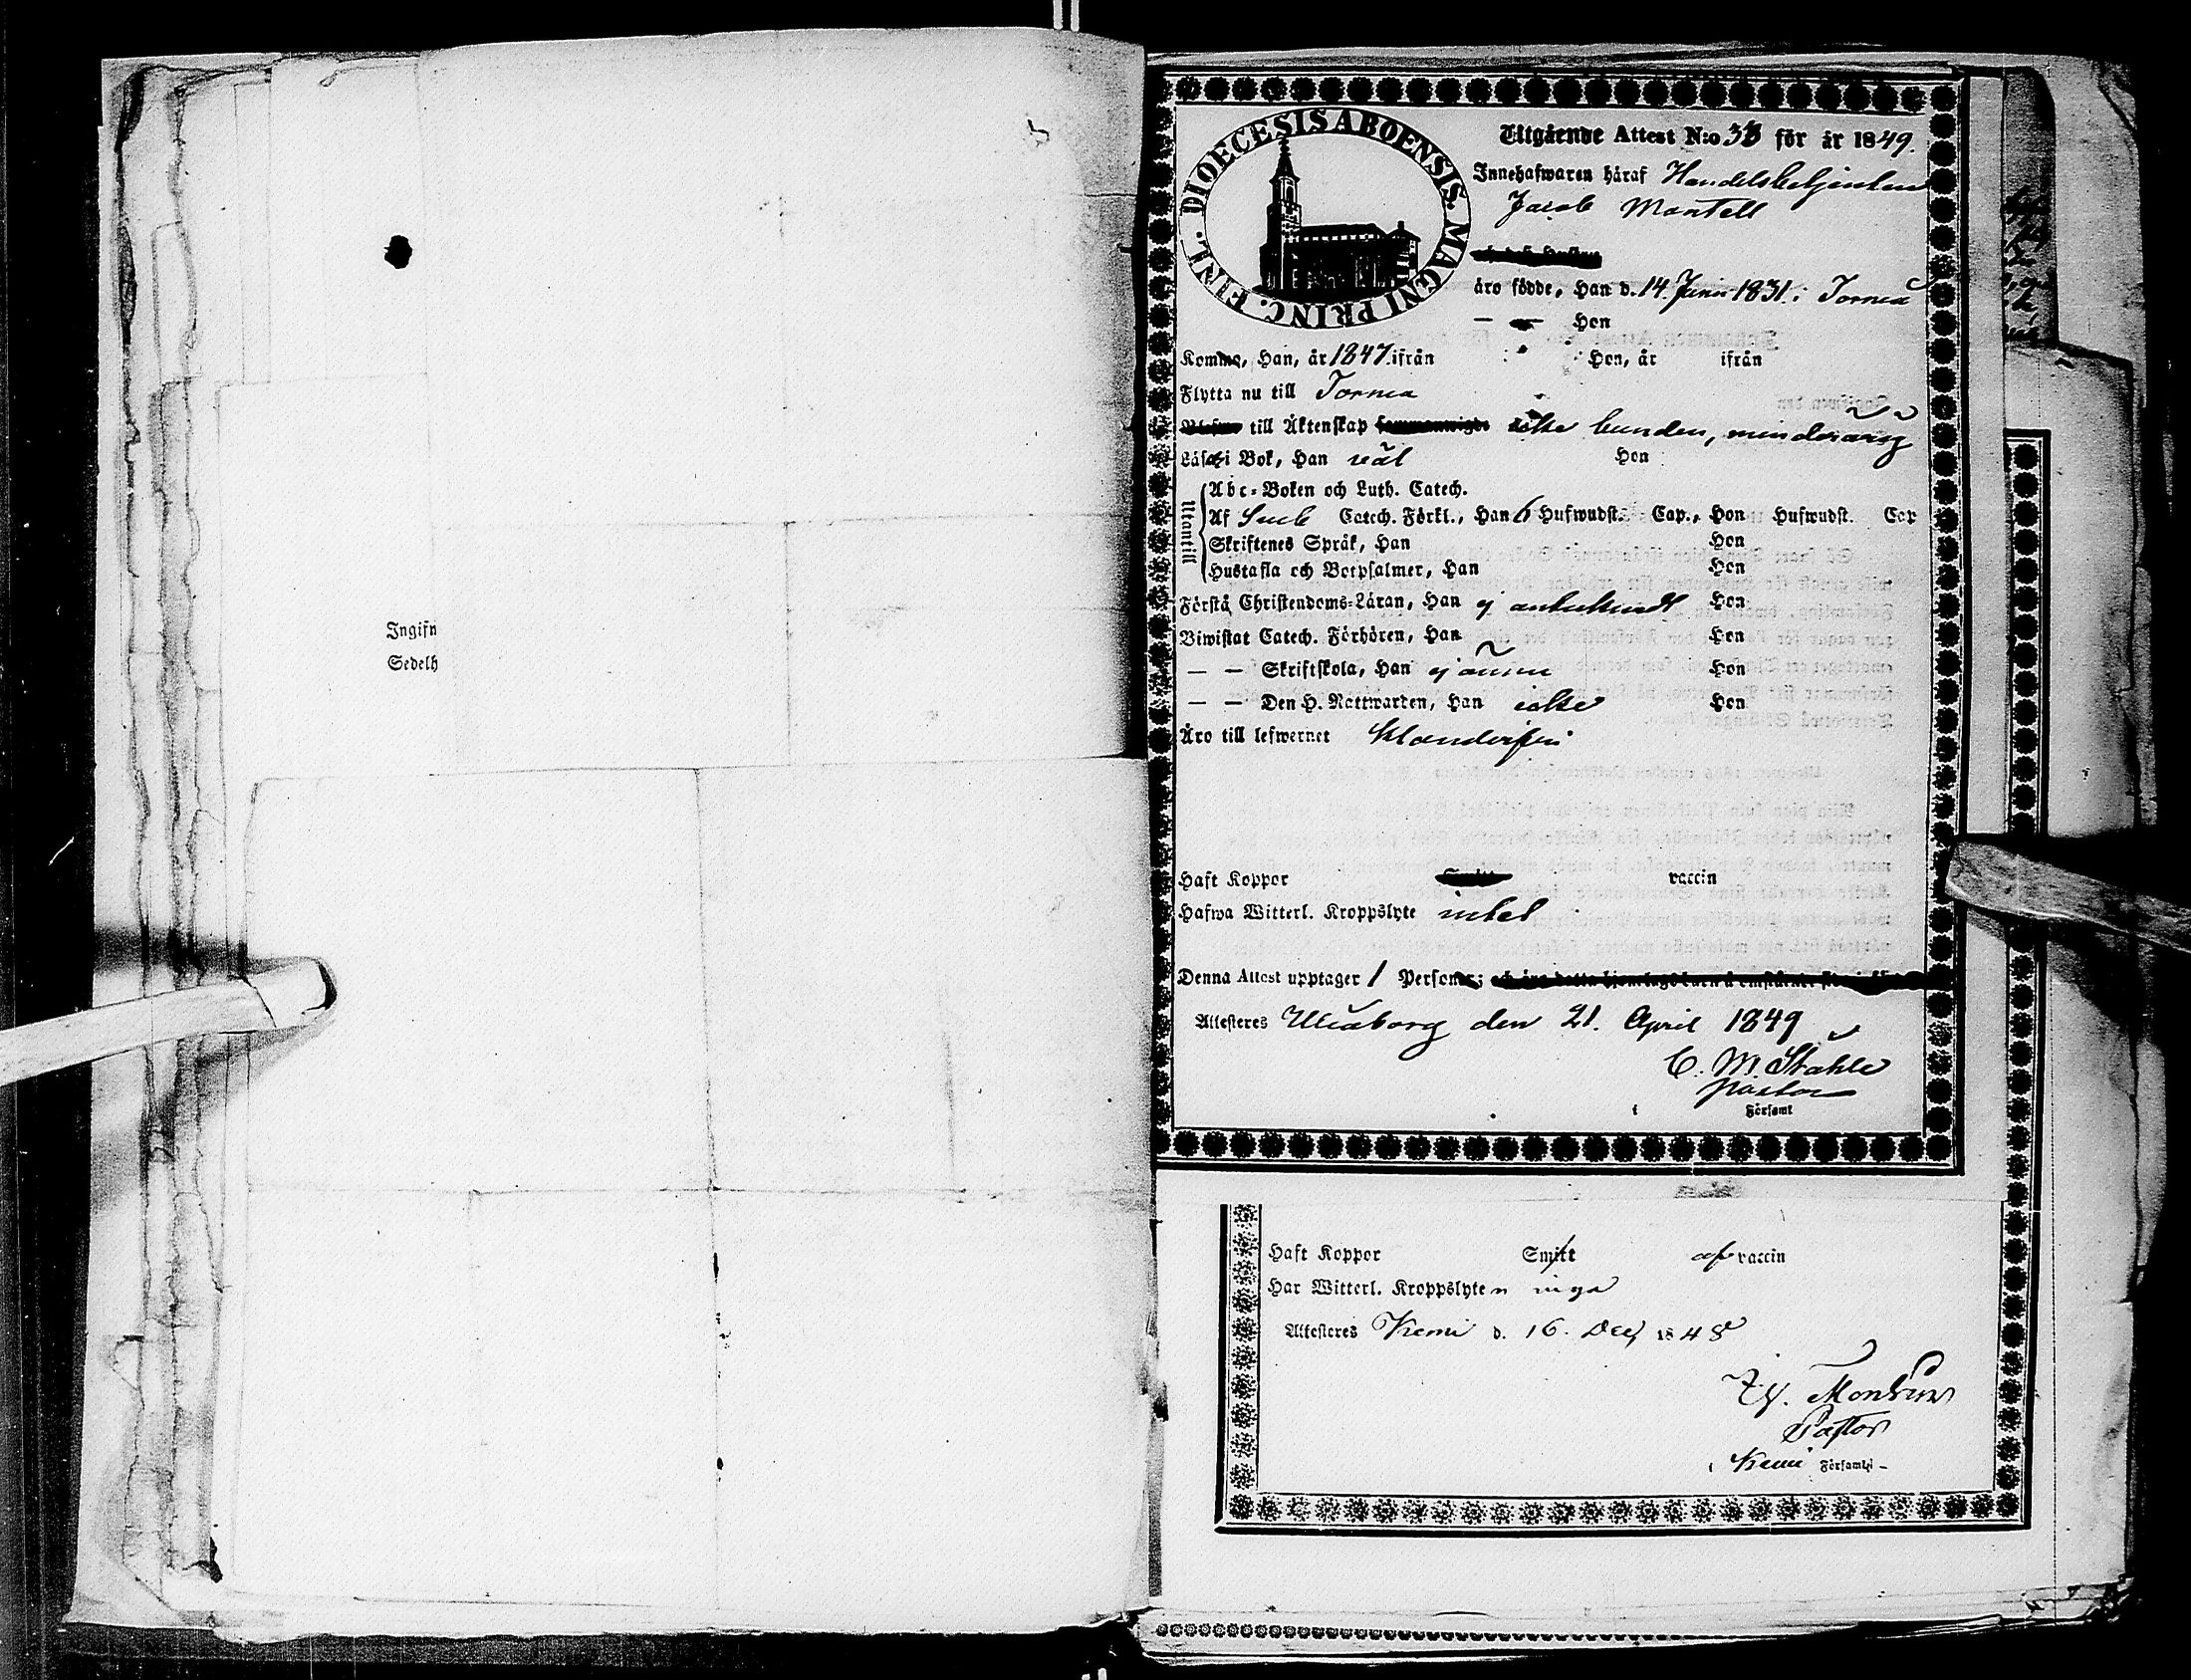 Ingifn
Sedelh
DIOECESIS ABOENSIS. MAGNI PRINC. FINL.
Utgående Attest N:o 33 för år 1849.
Innehafwaren häraf Handelsbetjenten
Jacob Montell
äro födde, Han d. 14. Junii 1831. i Torneå
— — Hon
Komne, Han, år 1847. ifrån Hon, år ifrån
Flytta nu till Torneå
till Äktenskap icke bunden, minderårig
Läsa i Bok, Han väl Hon
Utantill
Abc-Boken och Luth. Catech.
Af Sveb Catech. Förkl., Han 6 Hufwudst. Cap., Hon Hufwudst. Cap
Skriftenes Språk, Han Hon
Hustafla och Botpsalmer, Han Hon
Förstå Christendoms-Läran, Han ej Hon
Biwistat Catech. Förhören, Han Hon
— — Skriftskola, Han ej ännu Hon
— — Den H. Nattwarden, Han icke Hon
Äro till lefwernet klanderfri
Haft Koppor vaccin
Hafwa Witterl. Kroppslyte intet
Denna Attest upptager 1 Personer;
Attesteres Uleåborg den 21. April 1849
C. M. Ståhle
Pastor
i Församl
Haft Koppor Smitt af vaccin
Har Witterl. Kroppslyten inga
Attesteres Kemi d. 16. Dec, 1848
Pastor
i Kemi Församl. –